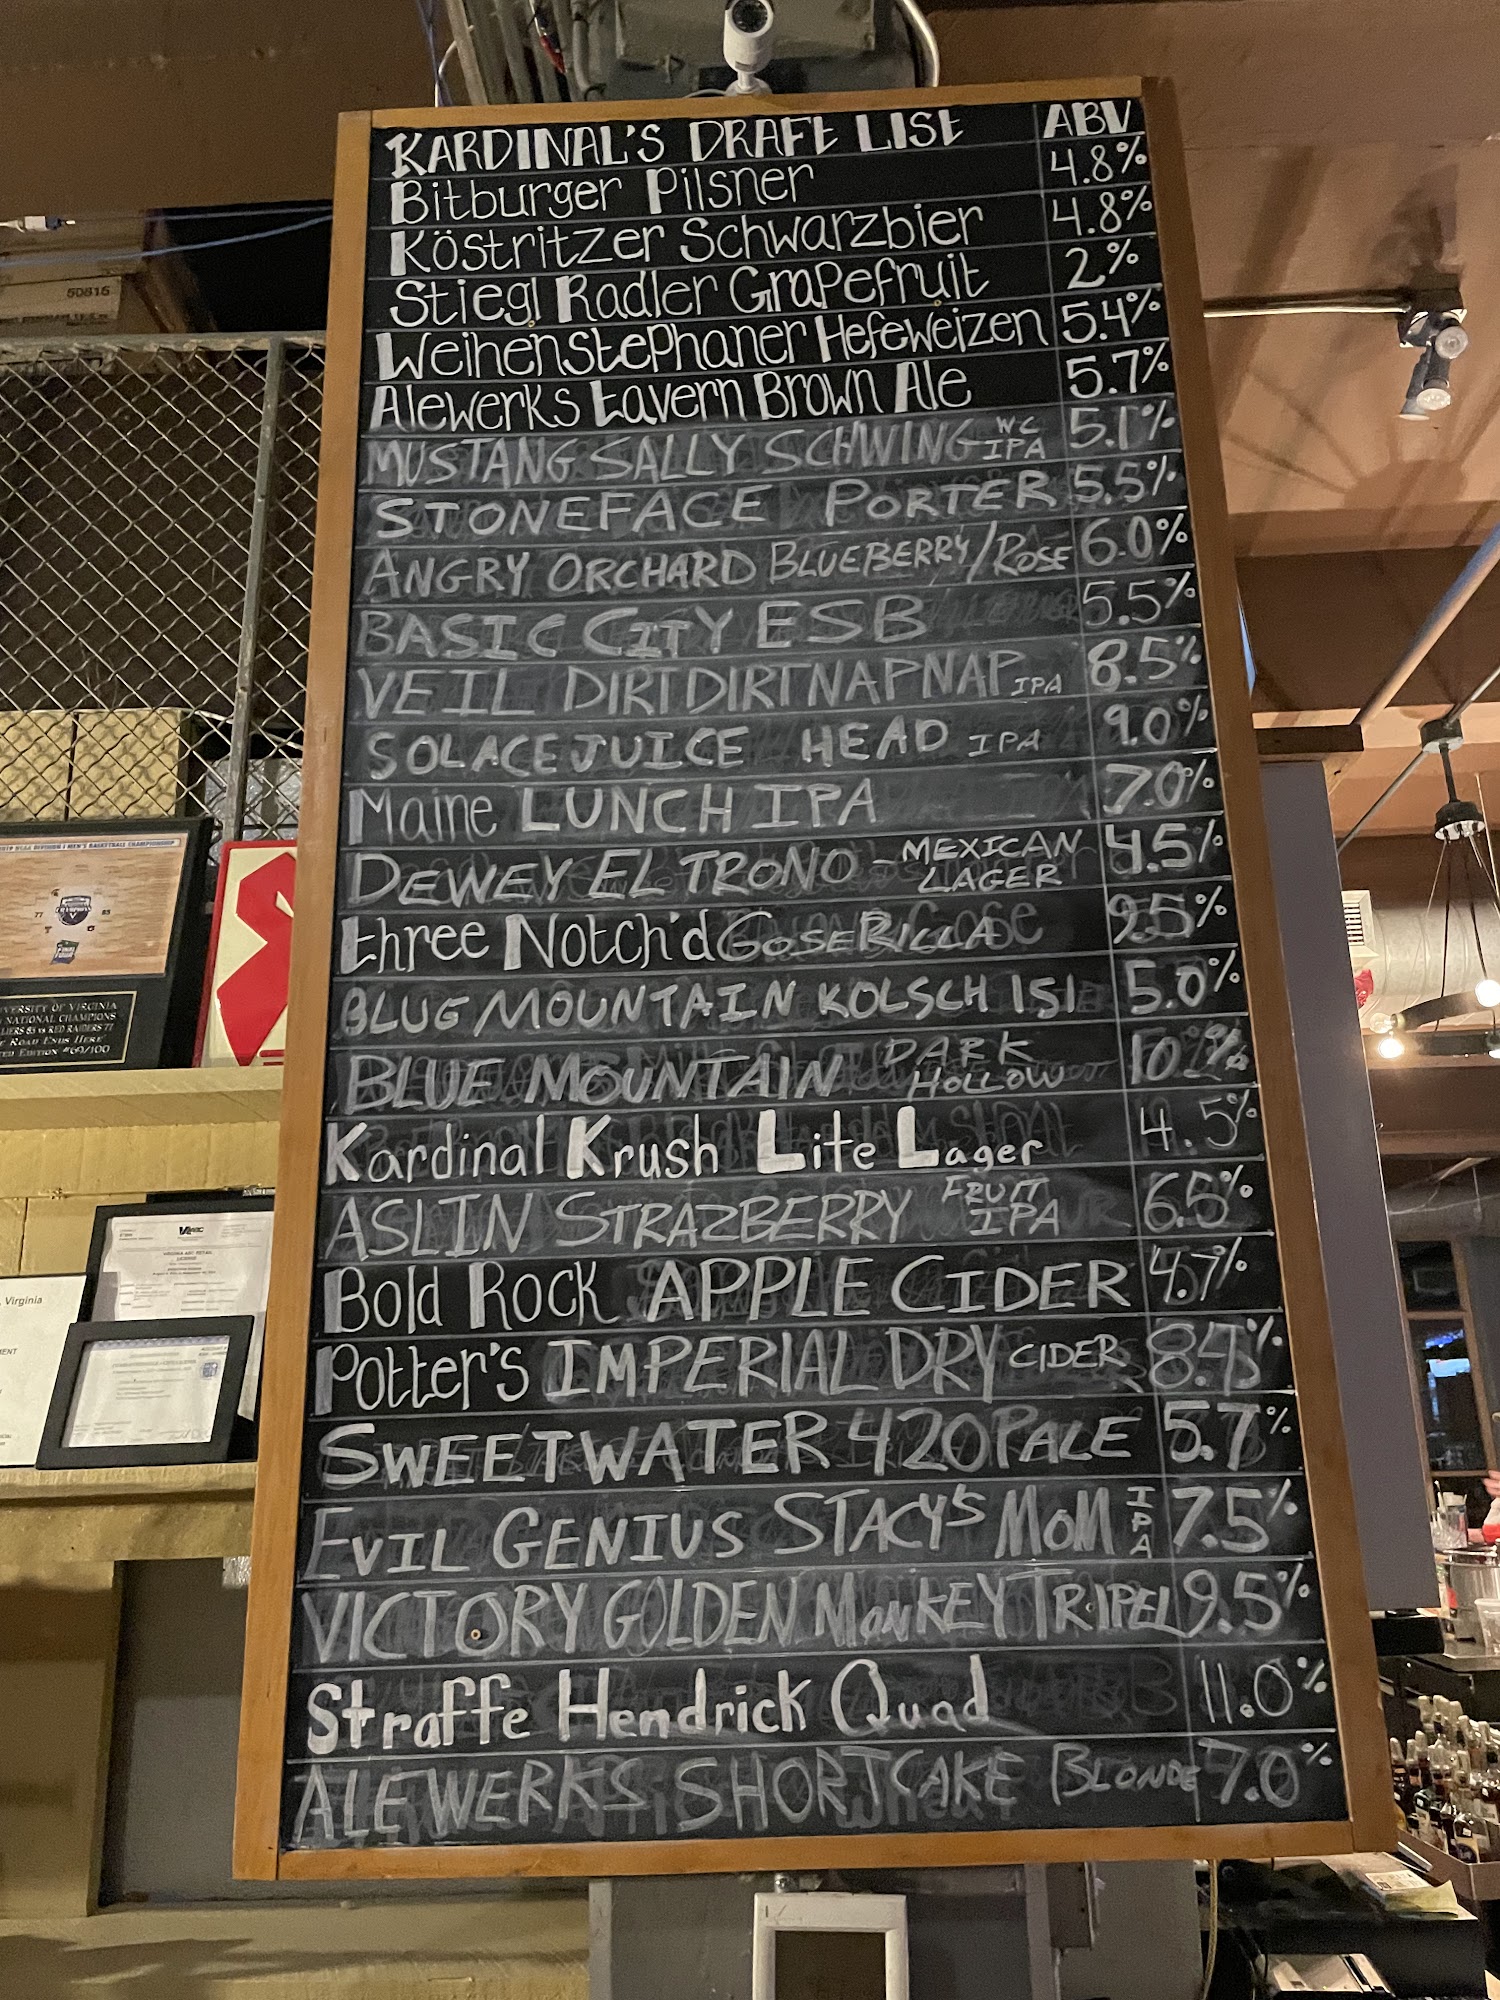 KARDINAL'S DRAFT LIST ABV
Bitburger Pilsner 4.8%
Köstritzer Schwarzbier 4.8%
Stiegl Radler Grapefruit 2%
Weihenstephaner Hefeweizen 5.4%
Alewerks Tavern Brown Ale 5.7%
MUSTANG SALLY SCHWING WC IPA 5.1%
STONEFACE PORTER 5.5%
ANGRY ORCHARD BLUEBERRY/ROSE 6.0%
BASIC CITY ESB 5.5%
VEIL DIRTDIRTNAPNAP IPA 8.5%
SOLACE JUICE HEAD IPA 9.0%
Maine LUNCH IPA 7.0%
DEWEY EL TRONO - MEXICAN LAGER 4.5%
Three Notch'd GOSERILLA
BLUE MOUNTAIN KOLSCH 151 5.0%
BLUE MOUNTAIN DARK HOLLOW 10%
Kardinal Krush Lite Lager 4.5%
ASLIN STRAZBERRY FRUIT IPA 6.5%
Bold Rock APPLE CIDER 4.7%
Potter's IMPERIAL DRY CIDER
SWEETWATER 420 PALE 5.7%
EVIL GENIUS STACY'S MOM IPA 7.5%
VICTORY GOLDEN MONKEY TRIPEL 9.5%
Straffe Hendrick Quad 11.0%
ALEWERKS SHORTCAKE BLONDE 7.0%
50815
77
VIRGINIA ABC RETAIL
LICENSE
, Virginia